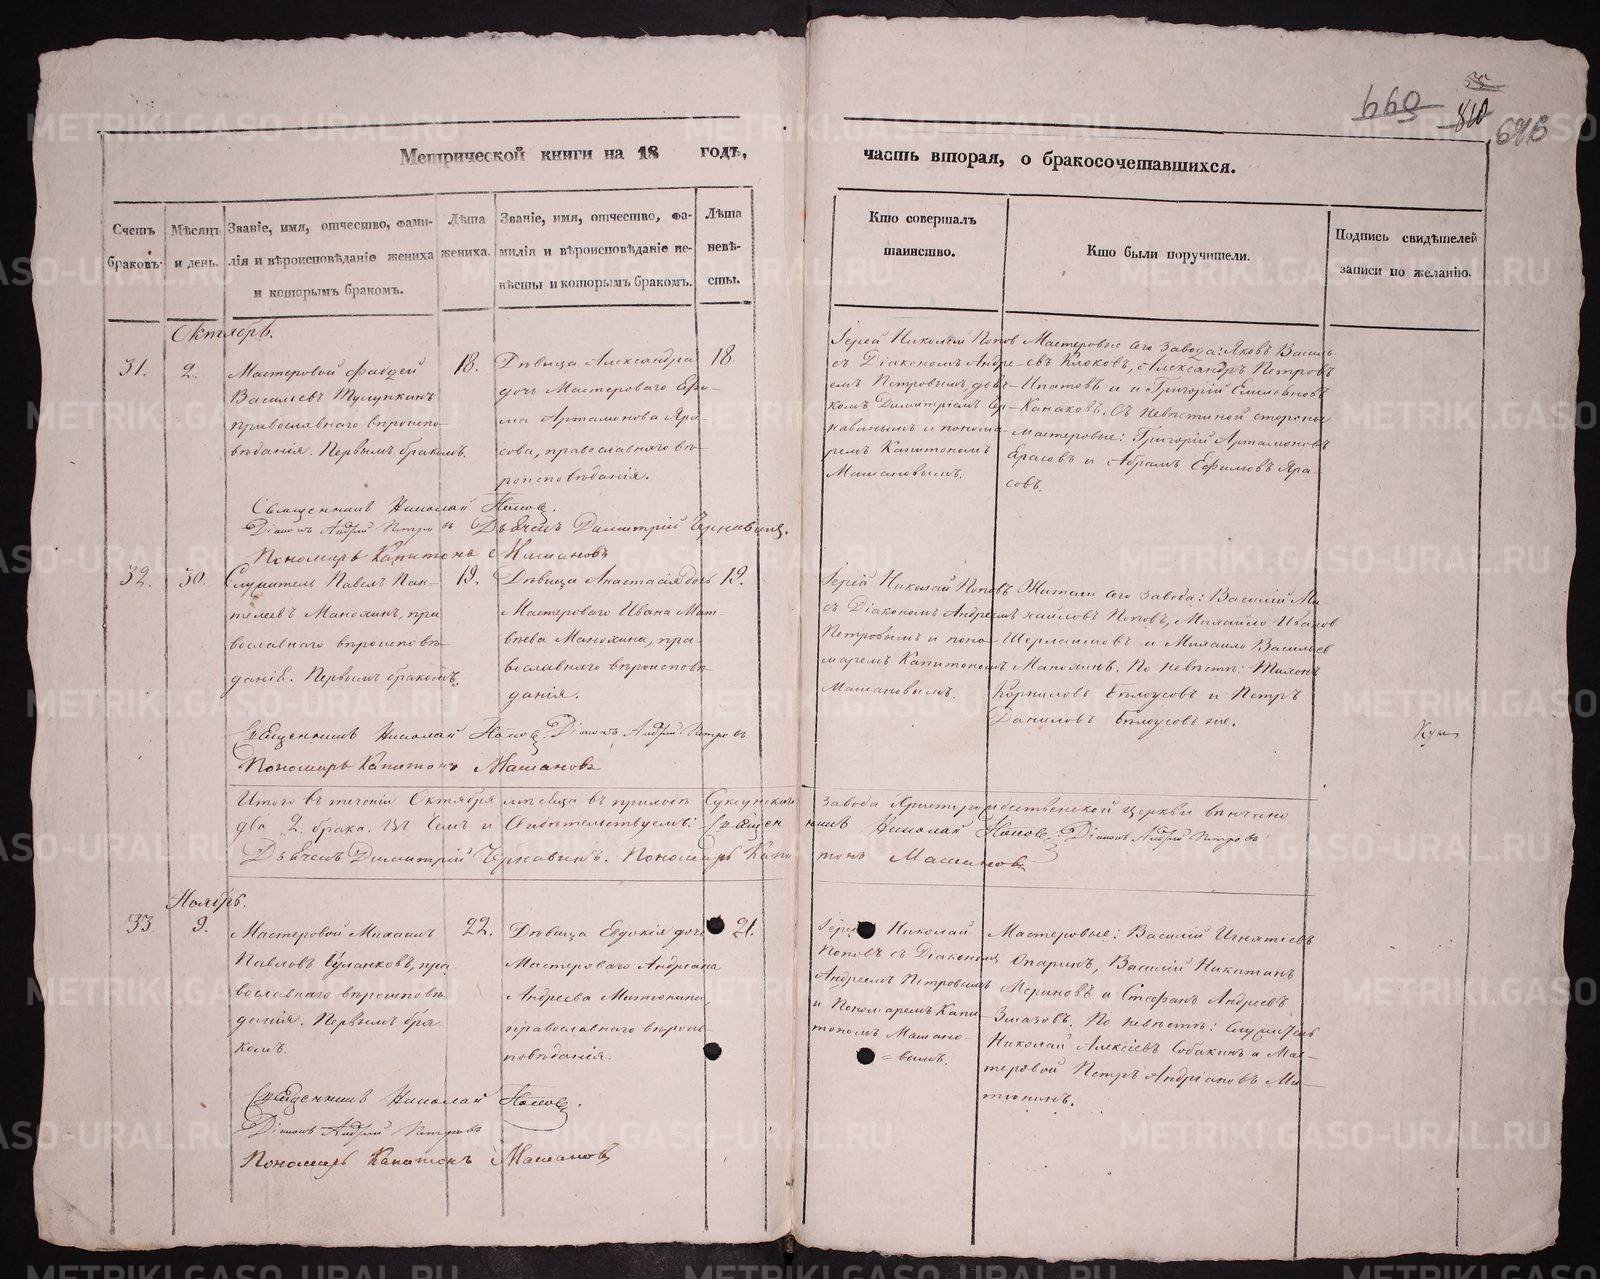 660
810
646
Метрической книги на 18 годъ,
часть вторая, о бракосочетавшихся.
Счетъ браковъ.
Мѣсяцъ и день.
Званіе, имя, отчество, фами-
лія и вѣроисповѣданіе жениха
и которымъ бракомъ.
Лѣта жениха.
Званіе, имя, отчество, фа-
милія и вѣроисповѣданіе не-
вѣсты и которымъ бракомъ.
Лѣта невѣ-
сты.
Кто совершалъ
таинство.
Кто были поручители.
Подпись свидѣтелей
записи по желанію.
Октябрь.
31.
2.
Мастеровой Фаддей
Васильевъ Тулупкинъ
православнаго вѣроиспо-
вѣданія. Первымъ бракомъ.
18.
Дѣвица Александра
дочь Мастероваго Ефи-
ма Артамонова Яра-
сова, православнаго вѣ-
роисповѣданія.
18.
Іерей Николай Поповъ
съ Діакономъ Андре-
емъ Петровымъ, дьяч-
комъ Димитріемъ Чер-
навинымъ и понома-
ремъ Капитономъ
Машановымъ.
Мастеровые сего завода: Яковъ Василь-
евъ Клоковъ, Александръ Петровъ
Ипатовъ и Григорій Емельяновъ
Канаковъ. Съ невѣстиной стороны
мастеровые: Григорій Артамоновъ
Ярасовъ и Абрамъ Ефимовъ Яра-
совъ.
Священникъ Николай Поповъ.
Діаконъ Андрей Петровъ Дьячекъ Димитрій Чернавинъ.
Пономарь Капитонъ Машановъ
32.
30.
Служитель Павелъ Пан-
телеевъ Манохинъ, пра
вославнаго вѣроисповѣ
данія. Первымъ бракомъ.
19.
Дѣвица Анастасія дочь
Мастероваго Ивана Мат-
вѣева Манохина, пра-
вославнаго вѣроисповѣ
данія.
19.
Іерей Николай Поповъ
съ Діакономъ Андреемъ
Петровымъ и поно-
маремъ Капитономъ
Машановымъ.
Жители сего завода: Василій Ми
хайловъ Поповъ, Михайло Ивановъ
Шерлаимовъ и Михайло Васильевъ
Манохинъ. По невѣстѣ: Тихонъ
Корниловъ Бѣлоусовъ и Петръ
Даниловъ Бѣлоусовъ же.
Священникъ Николай Поповъ. Діаконъ Андрей Петровъ
Пономарь Капитонъ Машановъ
Итого въ теченіи Октября мѣсяца въ приходѣ Суксунскаго завода Христорождественской церкви вѣнчано
два 2. брака. Въ чемъ и Свидѣтельствуемъ: Священникъ Николай Поповъ. Діаконъ Андрей Петровъ
Дьячекъ Димитрій Чернавинъ. Пономарь Капитонъ Машановъ
Ноябрь.
33.
9.
Мастеровой Михаилъ
Павловъ Гуланковъ, пра
вославнаго вѣроисповѣ
данія. Первымъ бра
комъ.
22.
Дѣвица Евдокія дочь
Мастероваго Андріана
Андреева Митюнина,
православнаго вѣроис
повѣданія.
21.
Іерей Николай
Поповъ съ Діакономъ
Андреемъ Петровымъ
и Пономаремъ Капи
тономъ Машано-
вымъ.
Мастеровые: Василій Игнатіевъ
Опаринъ, Василій Никитинъ
Мериновъ и Стефанъ Андреевъ
Змазовъ. По невѣстѣ: Служитель
Николай Алексіевъ Собакинъ и Мас-
теровой Петръ Андріановъ Ми-
тюнинъ.
Священникъ Николай Поповъ.
Діаконъ Андрей Петровъ
Пономарь Капитонъ Машановъ
METRIKI.GASO-URAL.RU